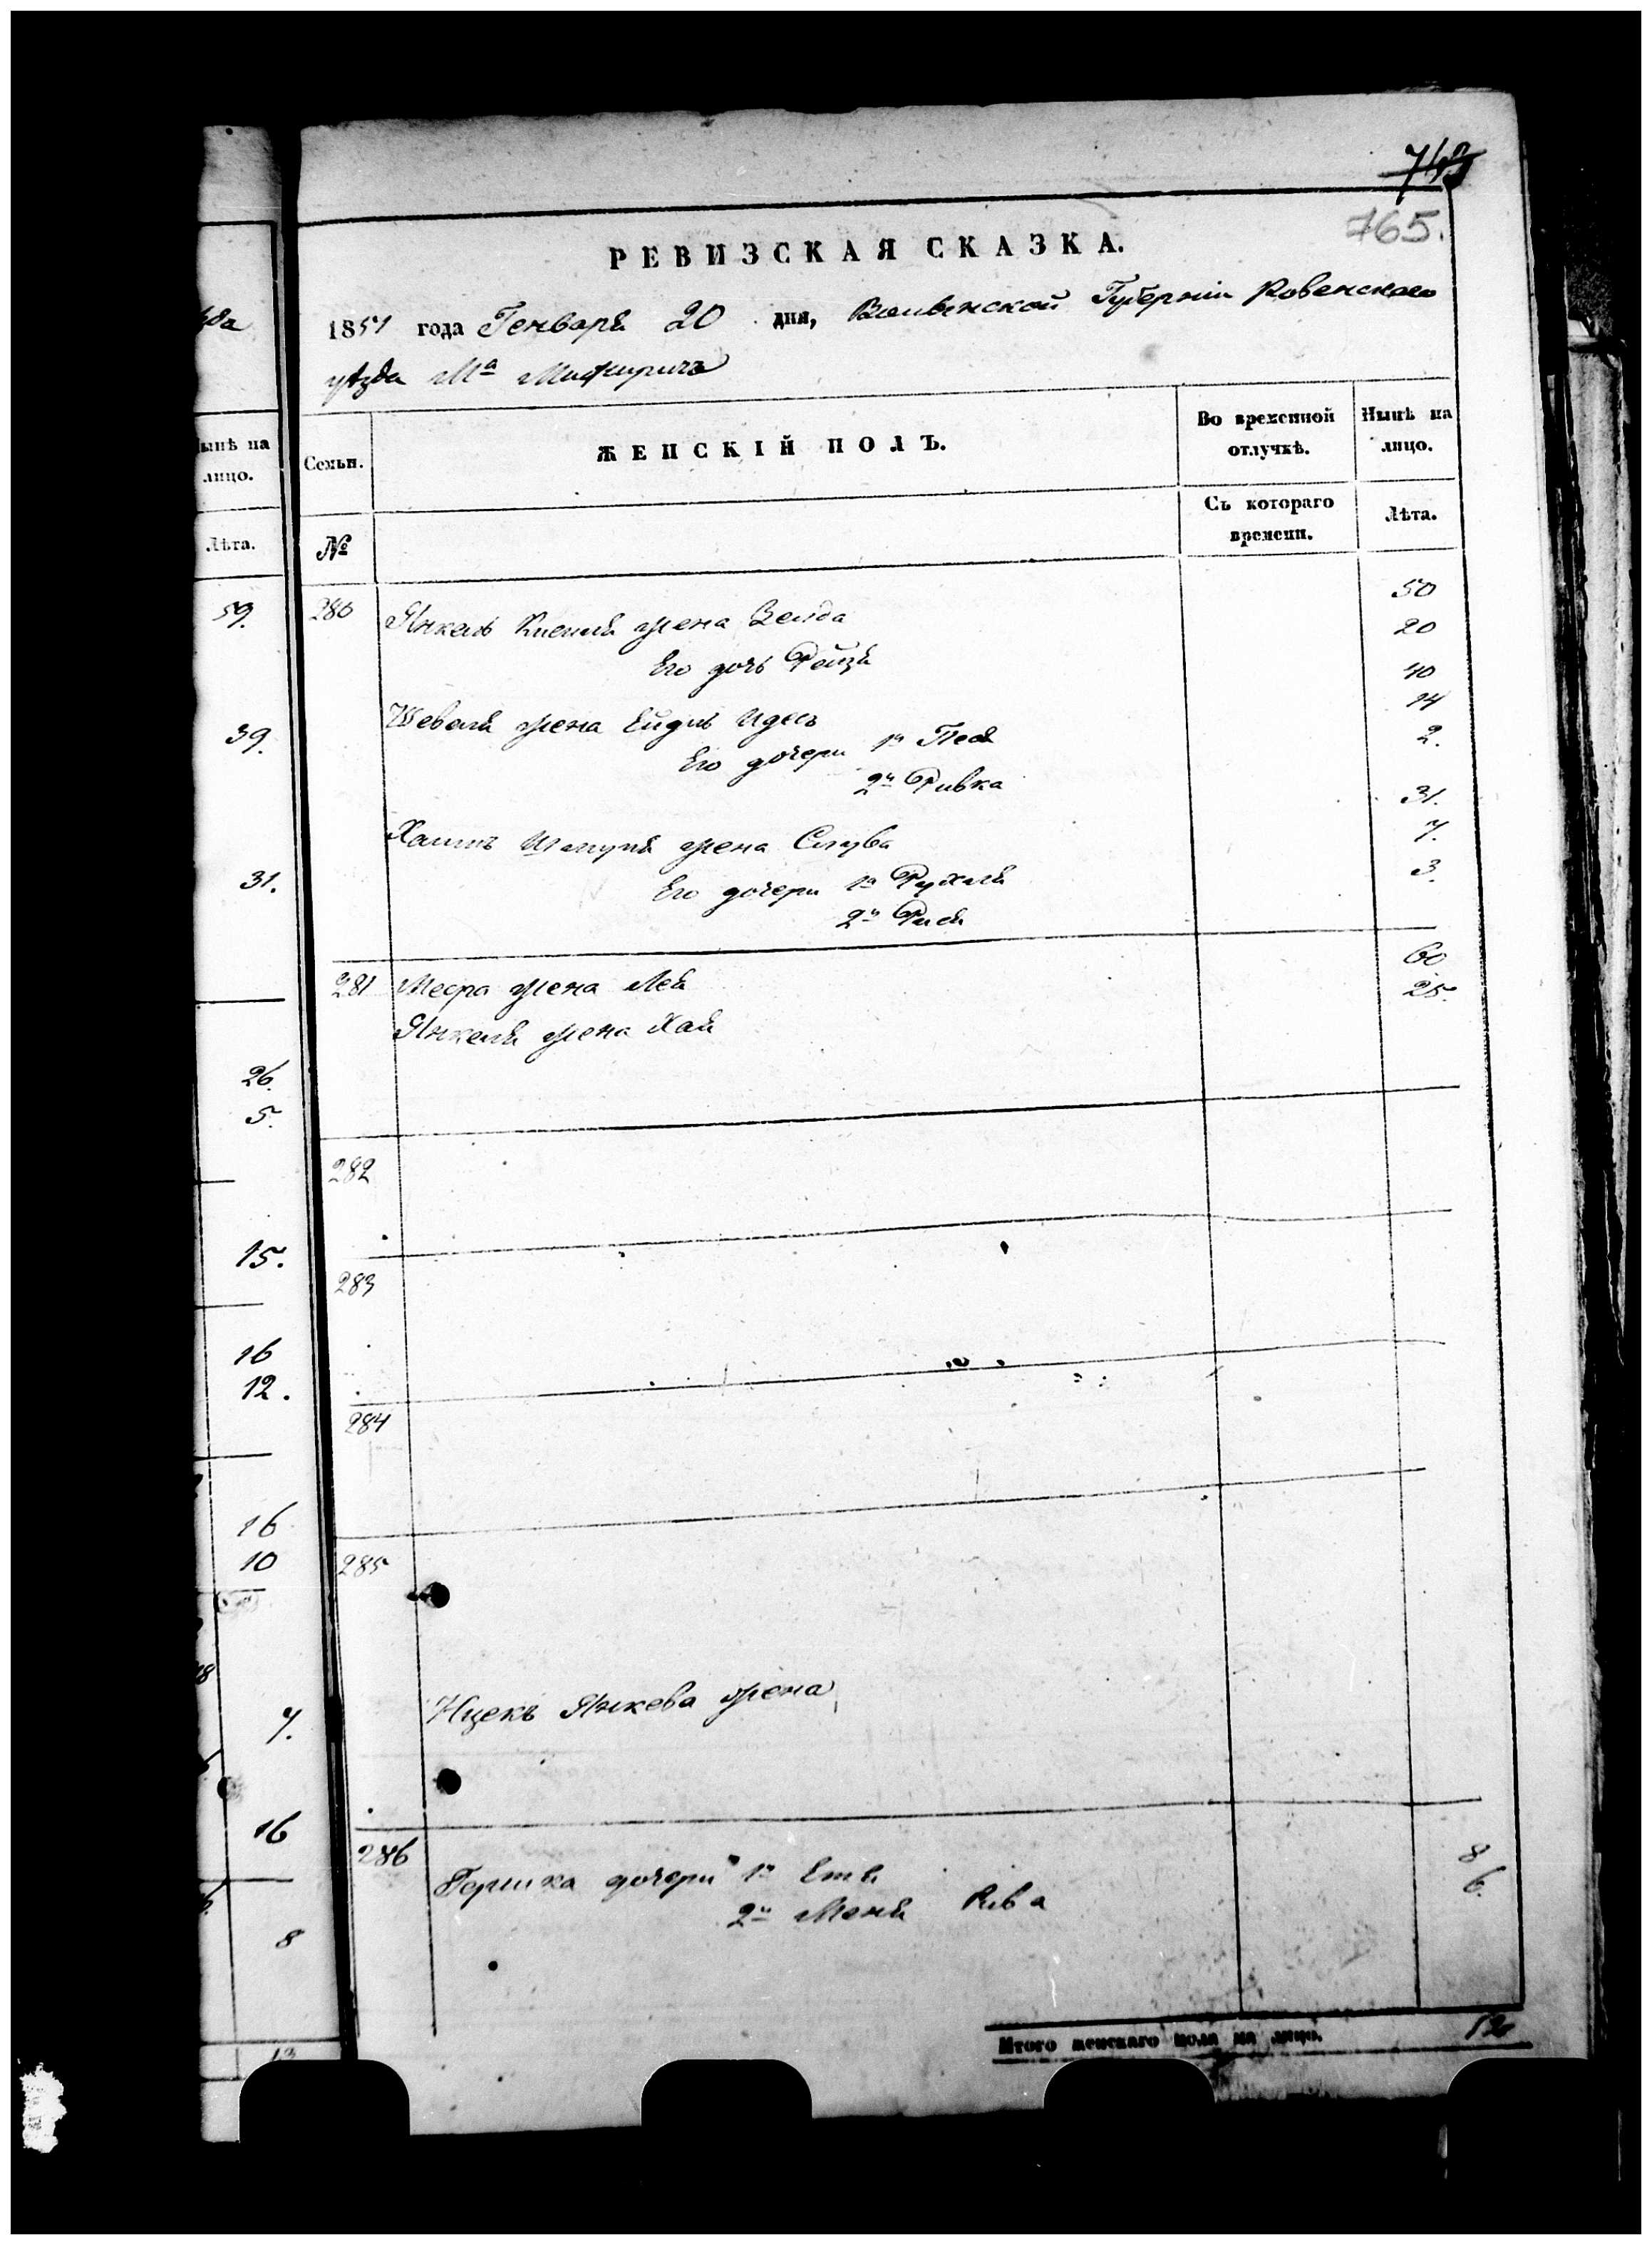 743
765.
РЕВИЗСКАЯ СКАЗКА.
1851 года Генваря 20 дня, Волынской Губерніи Ровенскаго
уѣзда Мᵃ Межиричъ
Семьи.
ЖЕНСКІЙ ПОЛЪ.
Во временной отлучкѣ.
Нынѣ на лицо.
№
Съ котораго времени.
Лѣта.
280 Янкель жена Зелда 50
Его дочь Рейзя 20
Шевеля жена Ейдля Идесъ 40
Его дочери 1я Песя 14
2я Ривка 2.
Хаимъ жена Слува 31.
Его дочери 1я Рухля 7.
2я Рися 3.
281 Меера жена Лея 60
Янкеля жена Хая 25.
282
283
284
285
Ицекъ Янкева жена
286 Гершка дочери 1я Етя 8
2я Меня Рива 6.
Итого женскаго пола на лицо. 12
ѣда
Нынѣ на лицо.
Лѣта.
59.
39.
31.
26.
5.
15.
16
12.
16
10
7.
16
8
13